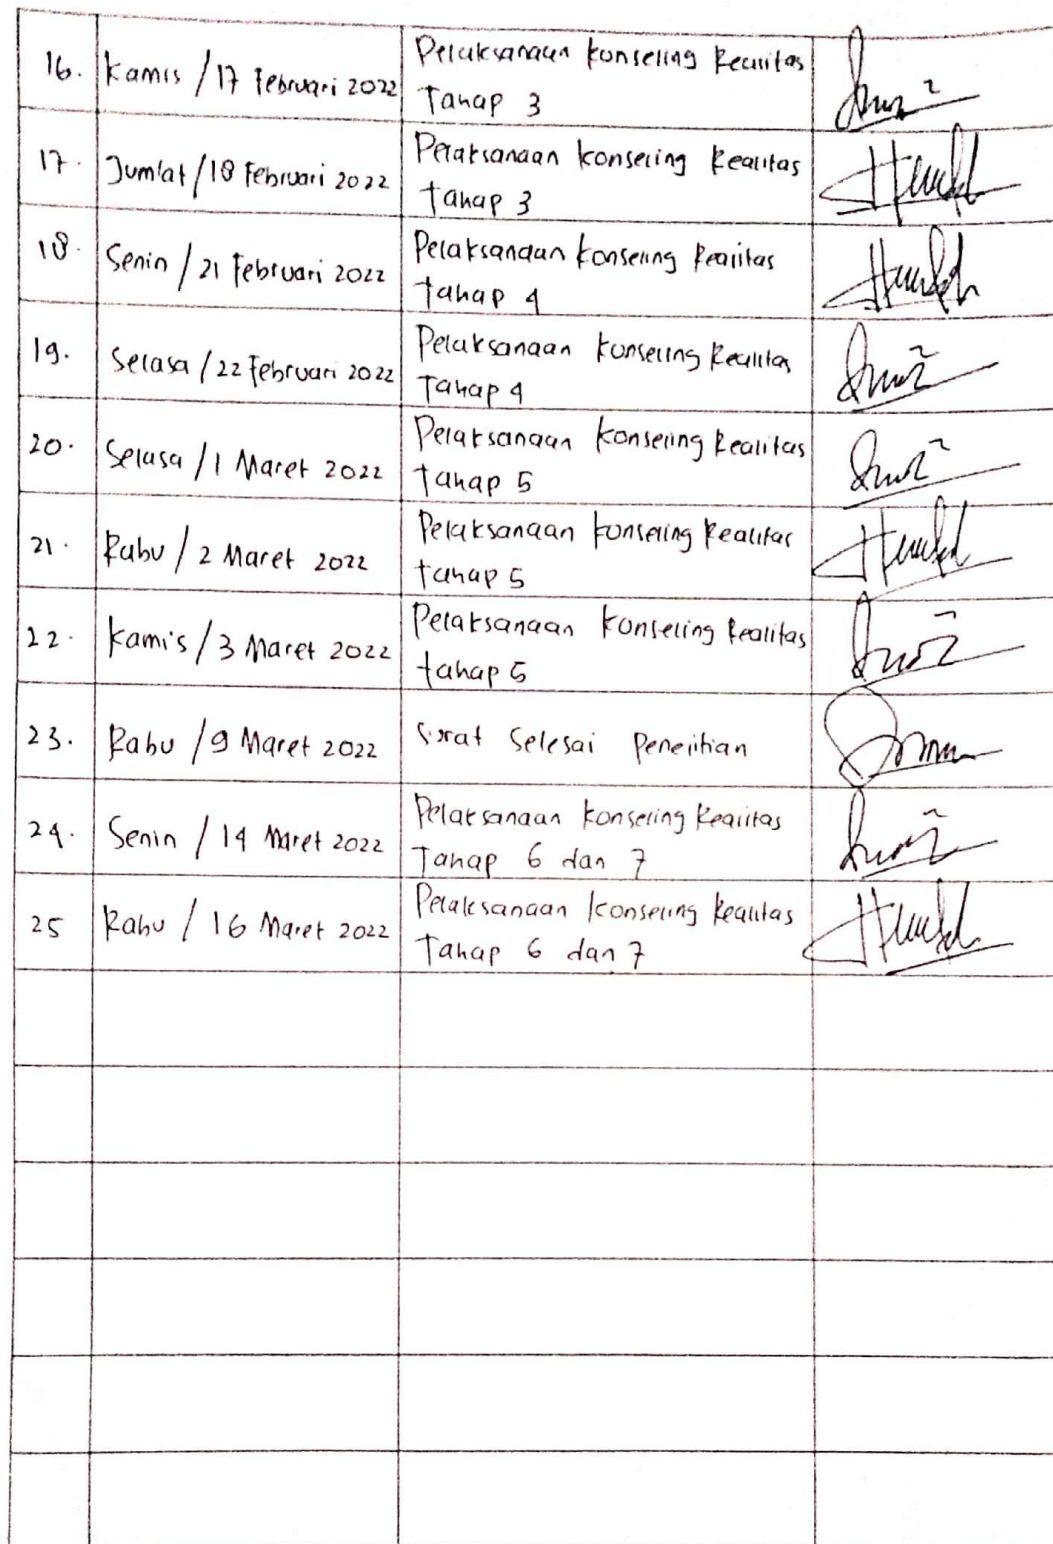 16. Kamis / 17 Februari 2022 Pelaksanaan Konseling Realitas
Tahap 3
17. Jum'at / 18 Februari 2022 Pelaksanaan Konseling Realitas
Tahap 3
18. Senin / 21 Februari 2022 Pelaksanaan Konseling Realitas
Tahap 4
19. Selasa / 22 Februari 2022 Pelaksanaan Konseling Realitas
Tahap 4
20. Selasa / 1 Maret 2022 Pelaksanaan Konseling Realitas
Tahap 5
21. Rabu / 2 Maret 2022 Pelaksanaan Konseling Realitas
tahap 5
22. Kamis / 3 Maret 2022 Pelaksanaan Konseling Realitas
tahap 5
23. Rabu / 9 Maret 2022 Surat Selesai Penelitian
24. Senin / 14 Maret 2022 Pelaksanaan Konseling Realitas
Tahap 6 dan 7
25 Rabu / 16 Maret 2022 Pelaksanaan Konseling Realitas
Tahap 6 dan 7